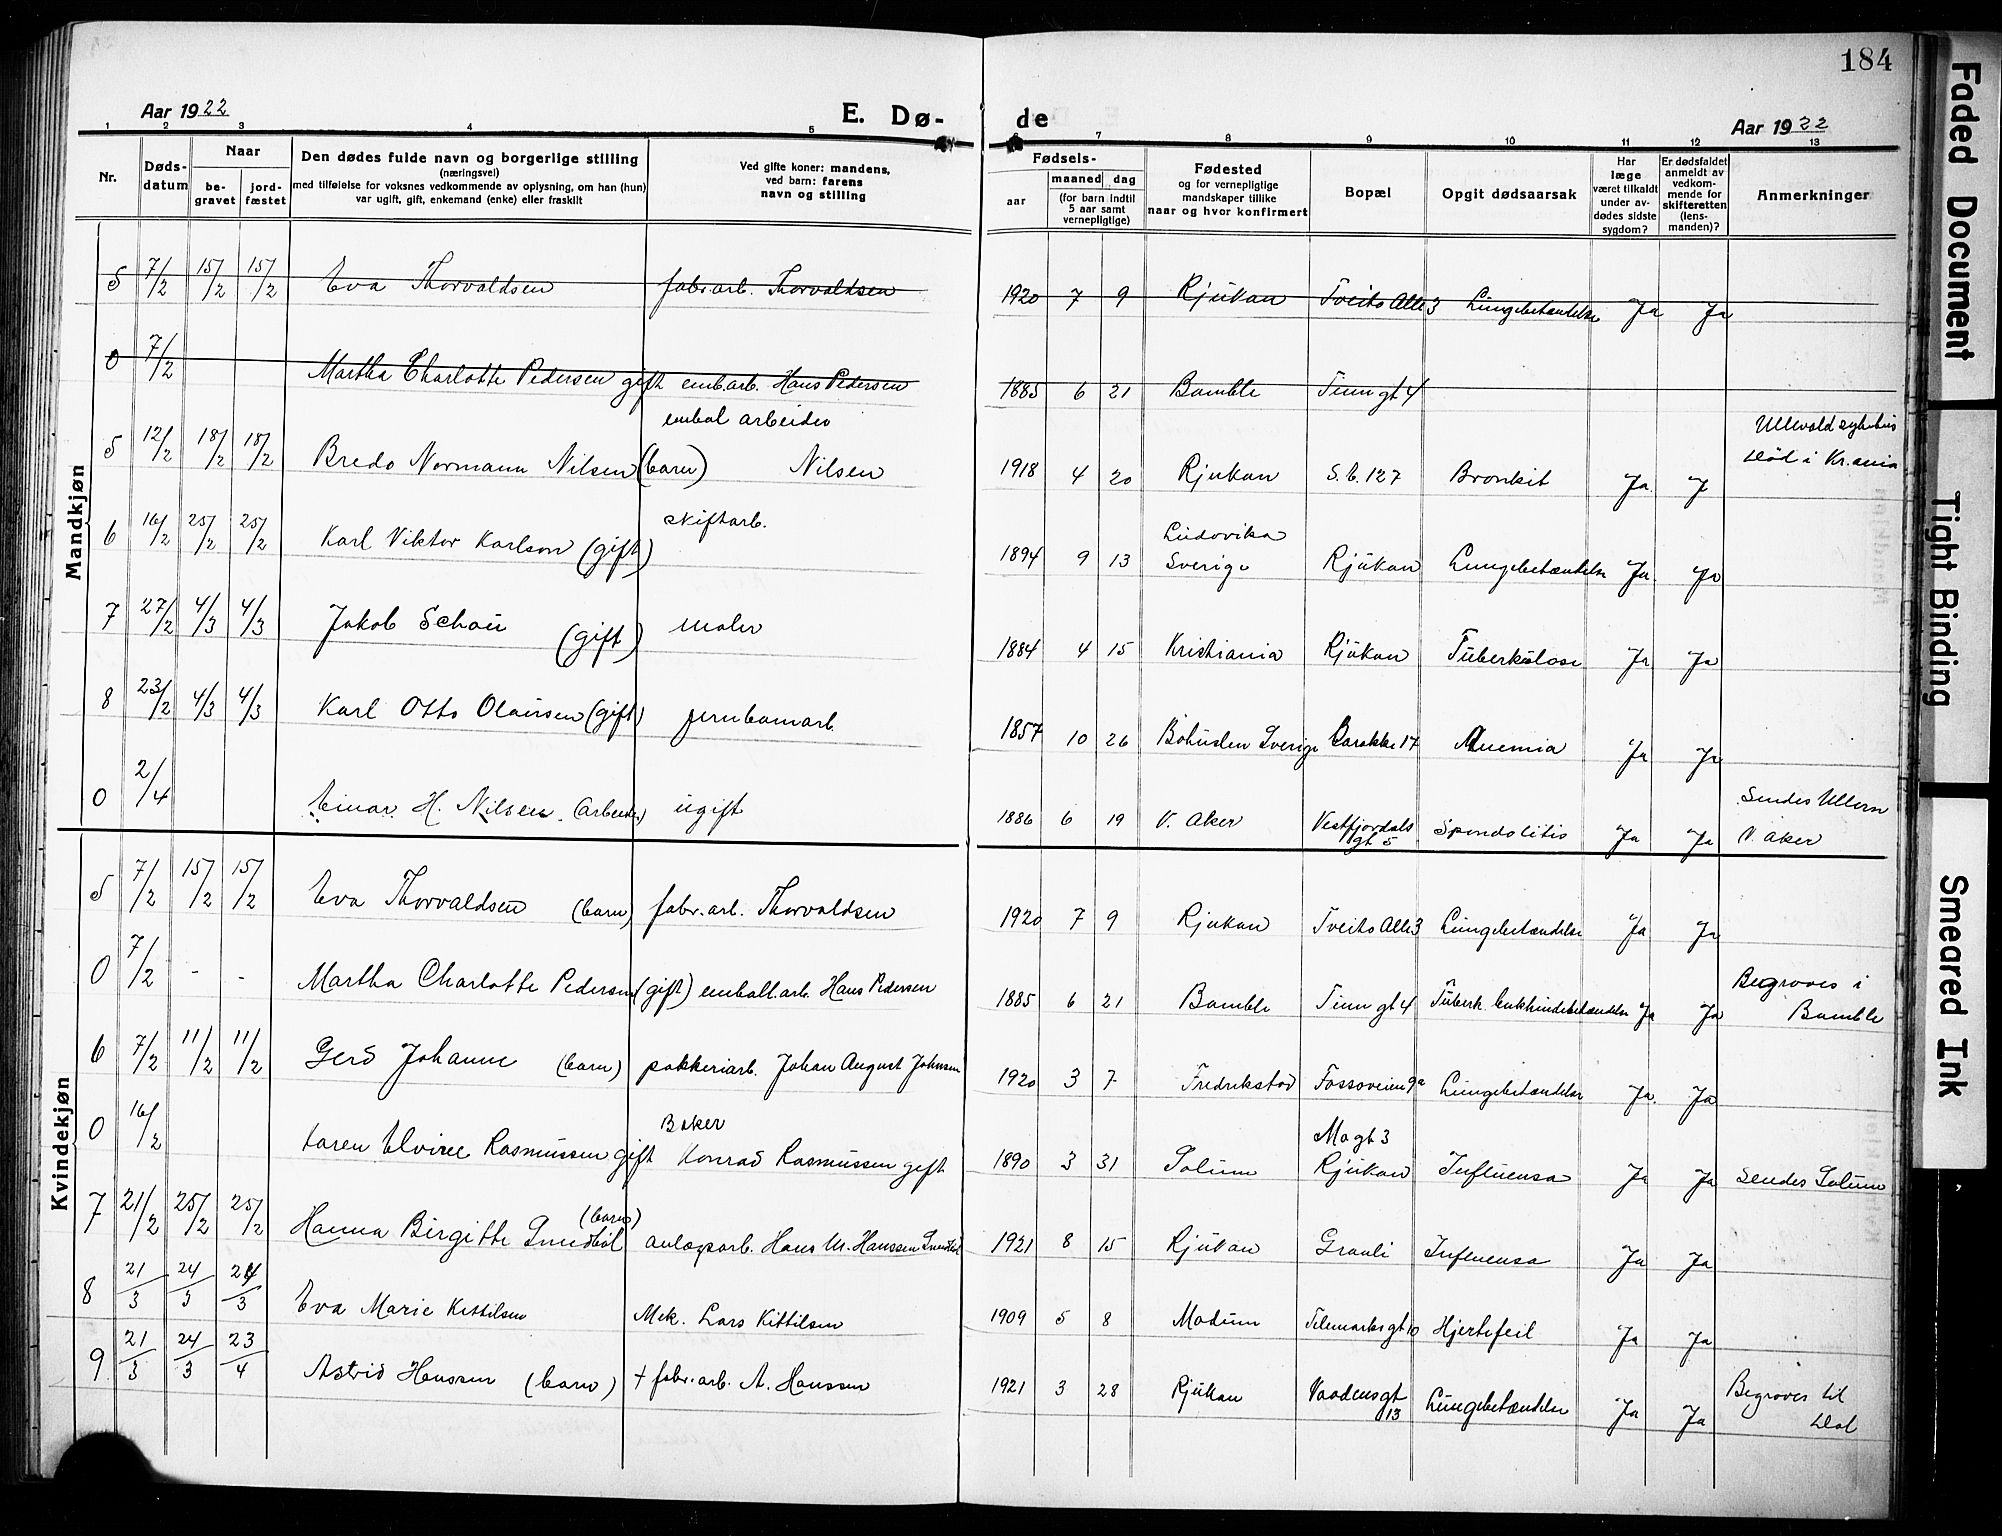 184
Aar 1922
E. Dø-
de
Aar 1922
1 2 3 4 5 6 7 8 9 10 11 12 13
Nr.
Døds-
datum
Naar
be-
gravet
jord-
fæstet
Den dødes fulde navn og borgerlige stilling
(næringsvei)
med tilføielse for voksnes vedkommende av oplysning, om han (hun)
var ugift, gift, enkemand (enke) eller fraskilt
Ved gifte koner: mandens,
ved barn: farens
navn og stilling
Fødsels-
aar
maaned dag
(for barn indtil
5 aar samt
vernepligtige)
Fødested
og for vernepligtige
mandskaper tillike
naar og hvor konfirmert
Bopæl
Opgit dødsaarsak
Har
læge
været tilkaldt
under av-
dødes sidste
sygdom?
Er dødsfaldet
anmeldt av
vedkom-
mende for
skifteretten
(lens-
manden)?
Anmerkninger
Mandkjøn
5 7/2 15/2 15/2 Eva Thorvaldsen fabr.arb. Thorvaldsen 1920 7 9 Rjukan Tveito Alle 3 Lungebetændelse Ja Ja
0 7/2 Martha Charlotte Pedersen gift emb.arb. Hans Pedersen 1885 6 21 Bamble Tinngt 4
embal arbeider
Ullevold sykehus
5 12/2 18/2 18/2 Bredo Normann Nilsen (barn) Nilsen 1918 4 20 Rjukan S.b. 127 Bronkit Ja J
død i Kr.ania
skiftarb.
Ludovika
6 16/2 25/2 25/2 Karl Viktor Karlson (gift) 1894 9 13 Sverige Rjukan Lungebetændelse Ja Ja
7 27/2 4/3 4/3 Jakob Schau (gift) maler 1884 4 15 Kristiania Rjukan Tuberkulose Ja Ja
8 23/2 4/3 4/3 Karl Otto Olaussen (gift) jernbanearb. 1857 10 26 Bohuslen Sverige Barakke 17 Anemia Ja Ja
Sendes Ullern
0 2/4 Einar H. Nilsen. (Arbeider) ugift 1886 6 19 V. Aker Vestfjordals gt 5 Spondolitis Ja Ja V. Aker
Kvindekjøn
5 7/2 15/2 15/2 Eva Thorvaldsen (barn) fabr.arb. Thorvaldsen 1920 7 9 Rjukan Tveito Alle 3 Lungebetændelse Ja Ja
Begraves i
0 7/2 - - Martha Charlotte Pedersen (gift) emball.arb. Hans Pedersen 1885 6 21 Bamble Tinngt 4 Tuberk. bukhindebetændelse Ja Ja Bamble
6 7/2 11/2 11/2 Gerd Johanne (barn) pakkeriarb. Johan August Johnsen 1920 3 7 Fredrikstad Fossoveien 9a Lungebetændelse Ja. Ja
Baker
Magt 3
0 16/2 Karen Elvine Rasmussen gift Konrad Rasmussen gift 1890 3 31 Solum Rjukan Influensa Ja Ja Sendes Solum
(barn)
7 21/2 25/2 25/2 Hanna Birgitte Smedbøl anlægsarb. Hans M. Hanssen Smedbøl 1921 8 15 Rjukan Grauli Influensa Ja Ja
8 21/3 24/3 24/3 Eva Marie Kittilsen Mek. Lars Kittilsen 1909 5 8 Modum Telemarksgt 10 Hjertefeil Ja Ja
Begraves til
9 21/3 24/3 23/4 Astrid Hanssen (barn) + fabr.arb. A. Hanssen 1921 3 28 Rjukan Vaadensgt 13 Lungebetændelse Ja Ja Dal
Faded Document
Tight Binding
Smeared Ink